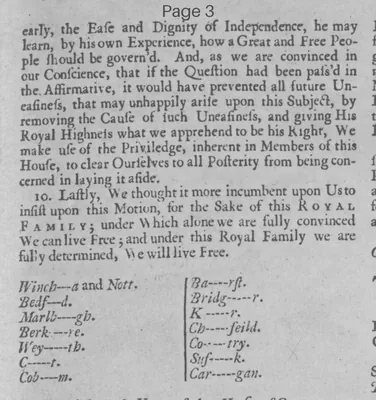 Page 3
early, the Eaſe and Dignity of Independence, he may
learn, by his own Experience, how a Great and Free Peo-
ple ſhould be govern'd. And, as we are convinced in
our Conſcience, that if the Queſtion had been paſs'd in
the Affirmative, it would have prevented all future Un-
eaſineſs, that may unhappily ariſe upon this Subject, by
removing the Cauſe of ſuch Uneaſineſs, and giving His
Royal Highneſs what we apprehend to be his Right, We
make uſe of the Priviledge, inherent in Members of this
Houſe, to clear Ourſelves to all Poſterity from being con-
cerned in laying it aſide.
10. Laſtly, We thought it more incumbent upon Us to
inſiſt upon this Motion, for the Sake of this ROYAL
FAMILY; under Which alone we are fully convinced
We can live Free; and under this Royal Family we are
fully determined, We will live Free.
Winch---a and Nott.
Bedf--d.
Marlb----gh.
Berk----re.
Wey-----th.
C-----t.
Cob----m.
Ba----rſt.
Bridg-----r.
K-----r.
Ch----ſeild.
Co----try.
Suſ-----k.
Car----gan.